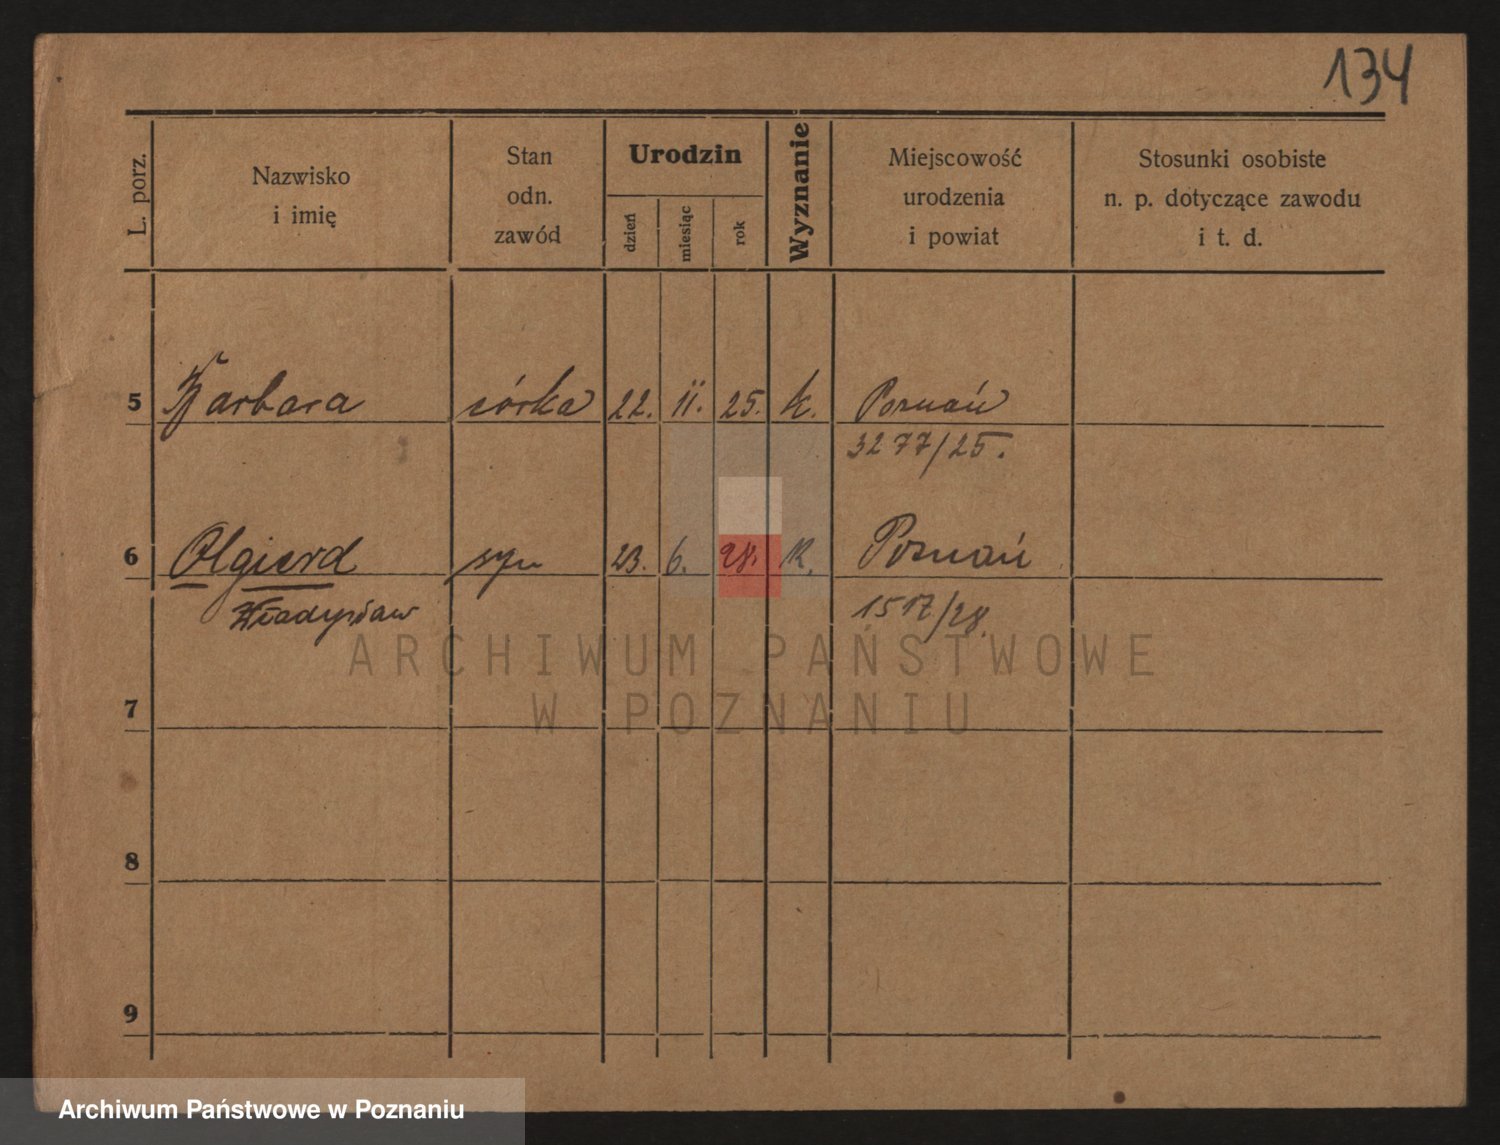 134
L. porz.
Nazwisko
i imię
Stan
odn.
zawód
Urodzin
dzień
miesiąc
rok
Wyznanie
Miejscowość
urodzenia
i powiat
Stosunki osobiste
n. p. dotyczące zawodu
i t. d.
5 Barbara córka 22. II. 25. k. Poznań
3277/25.
6 Olgierd syn 23. 6. 28. k. Poznań
Władysław 1517/28.
ARCHIWUM PAŃSTWOWE
W POZNANIU
7
8
9
Archiwum Państwowe w Poznaniu